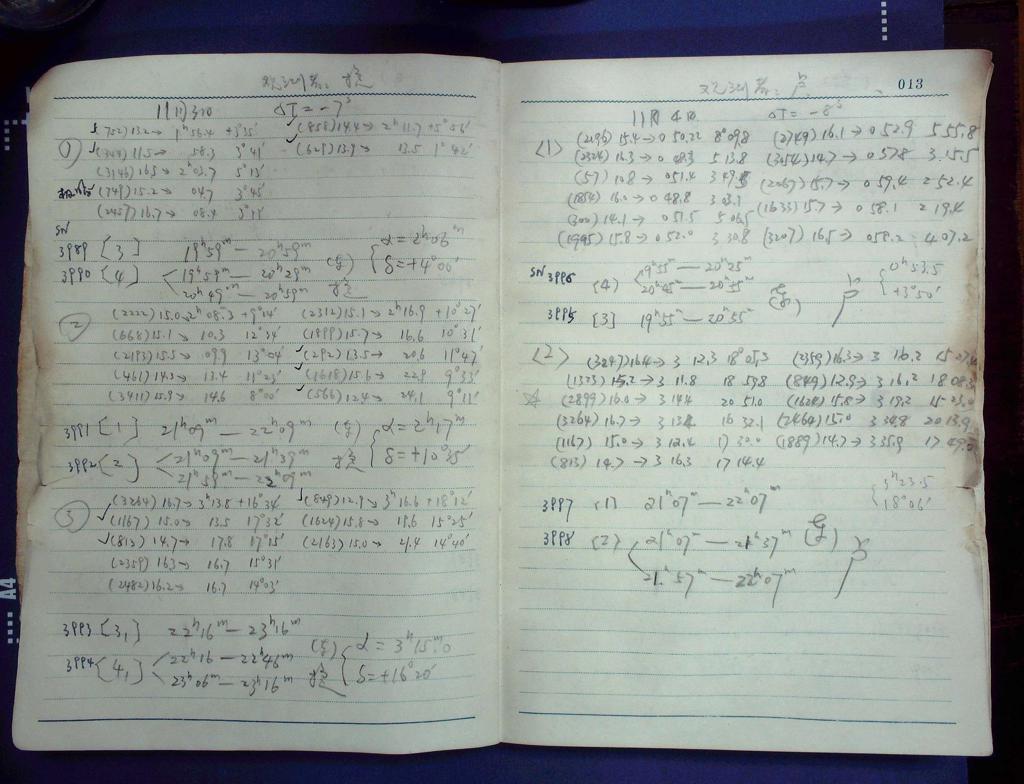 观测者:
11月3日 ΔT = -7ˢ
① (752)13.2→ 1ʰ56.4 +3°35′ ✓(858)14.4→ 2ʰ11.7 +5°56′
11.5→ 58.3 3°41′ ✓(629)13.9→ 13.5 1°42′
(3146)16.5→ 2ʰ03.7 5°13′
(749)15.2→ 04.7 3°45′
16.7→ 08.4
SN
3989 [3] 19ʰ59ᵐ — 20ʰ59ᵐ
3990 [4] 19ʰ59ᵐ — 20ʰ29ᵐ
20ʰ49ᵐ — 20ʰ59ᵐ
α = 2ʰ06ᵐ
δ = +4°00′
② (2222)15.0→ 2ʰ08.3 +9°14′ (2312)15.1→ 2ʰ16.9 +10°27′
(668)15.1→ 10.3 12°34′ (1899)15.7→ 16.6 10°31′
(2193)15.5→ 09.9 13°04′ ✓(292)13.5→ 20.6 11°47′
(461)14.3→ 13.4 11°23′ ✓(1618)15.6→ 22.9 9°33′
(3411)15.9→ 14.6 8°00′ ✓(566)12.4→ 24.1 9°11′
3991 [1] 21ʰ09ᵐ — 22ʰ09ᵐ
3992 [2] 21ʰ09ᵐ — 21ʰ39ᵐ
21ʰ59ᵐ — 22ʰ09ᵐ
α = 2ʰ17ᵐ
δ = +10°35′
③ ✓(3264)16.7→ 3ʰ13.8 +16°34′ ✓(849)12.9→ 3ʰ16.6 +18°12′
✓(1167)15.0→ 13.5 17°32′ (1624)15.8→ 19.6 15°25′
✓(813)14.7→ 17.8 17°15′ (2163)15.0→ 21.4 14°40′
(2359)16.3→ 16.7 15°31′
(2482)16.2→ 16.7 14°03′
3993 [3₁] 22ʰ16ᵐ — 23ʰ16ᵐ
3994 [4₁] 22ʰ16 — 22ʰ46ᵐ
23ʰ06ᵐ — 23ʰ16ᵐ
α = 3ʰ15ᵐ.0
δ = +16°20′
013
观测者:
11月4日 ΔT = -8ˢ
<1> (2196)15.4→ 0 50.22 8°09.8 (2749)16.1→ 0 52.9 5 55.8
(2304)16.3→ 0 48.3 5 13.8 (3054)14.7→ 0 57.8 3 15.5
(57)10.8→ 0 51.4 (2067)15.7→ 0 59.4 2 52.4
(1854)16.0→ 0 48.8 3 03.1 (1633)15.7→ 0 58.1 2 19.4
(300)14.1→ 0 51.5 5 06.5
(1995)15.8→ 0 52.0 3 30.8 (3207)16.5→ 0 59.2 4 07.2
SN 3996 (4) 19ʰ55ᵐ — 20ʰ25ᵐ
20ʰ45ᵐ — 20ʰ55ᵐ
0ʰ53.5
+3°50′
3995 [3] 19ʰ55ᵐ — 20ʰ55ᵐ
<2> (3247)16.4→ 3 12.3 18°05.3 (2359)16.3→ 3 16.2
(1323)15.2→ 3 11.8 18 59.8 (849)12.9→ 3 16.2 18 08.3
☆ (2899)16.0→ 3 14.4 20 51.0 (1624)15.8→ 3 19.2 15 23.0
(3264)16.7→ 3 13.4 16 32.1 (2464)15.0 3 34.8 20 13.9
(1167)15.0→ 3 12.4 17 30.0 (1889)14.7→ 3 35.9
(813)14.7→ 3 16.3 17 14.4
3ʰ23.5
18°06′
3997 (1) 21ʰ07ᵐ — 22ʰ07ᵐ
3998 (2) 21ʰ07ᵐ — 21ʰ37ᵐ
21ʰ57ᵐ — 22ʰ07ᵐ
A4